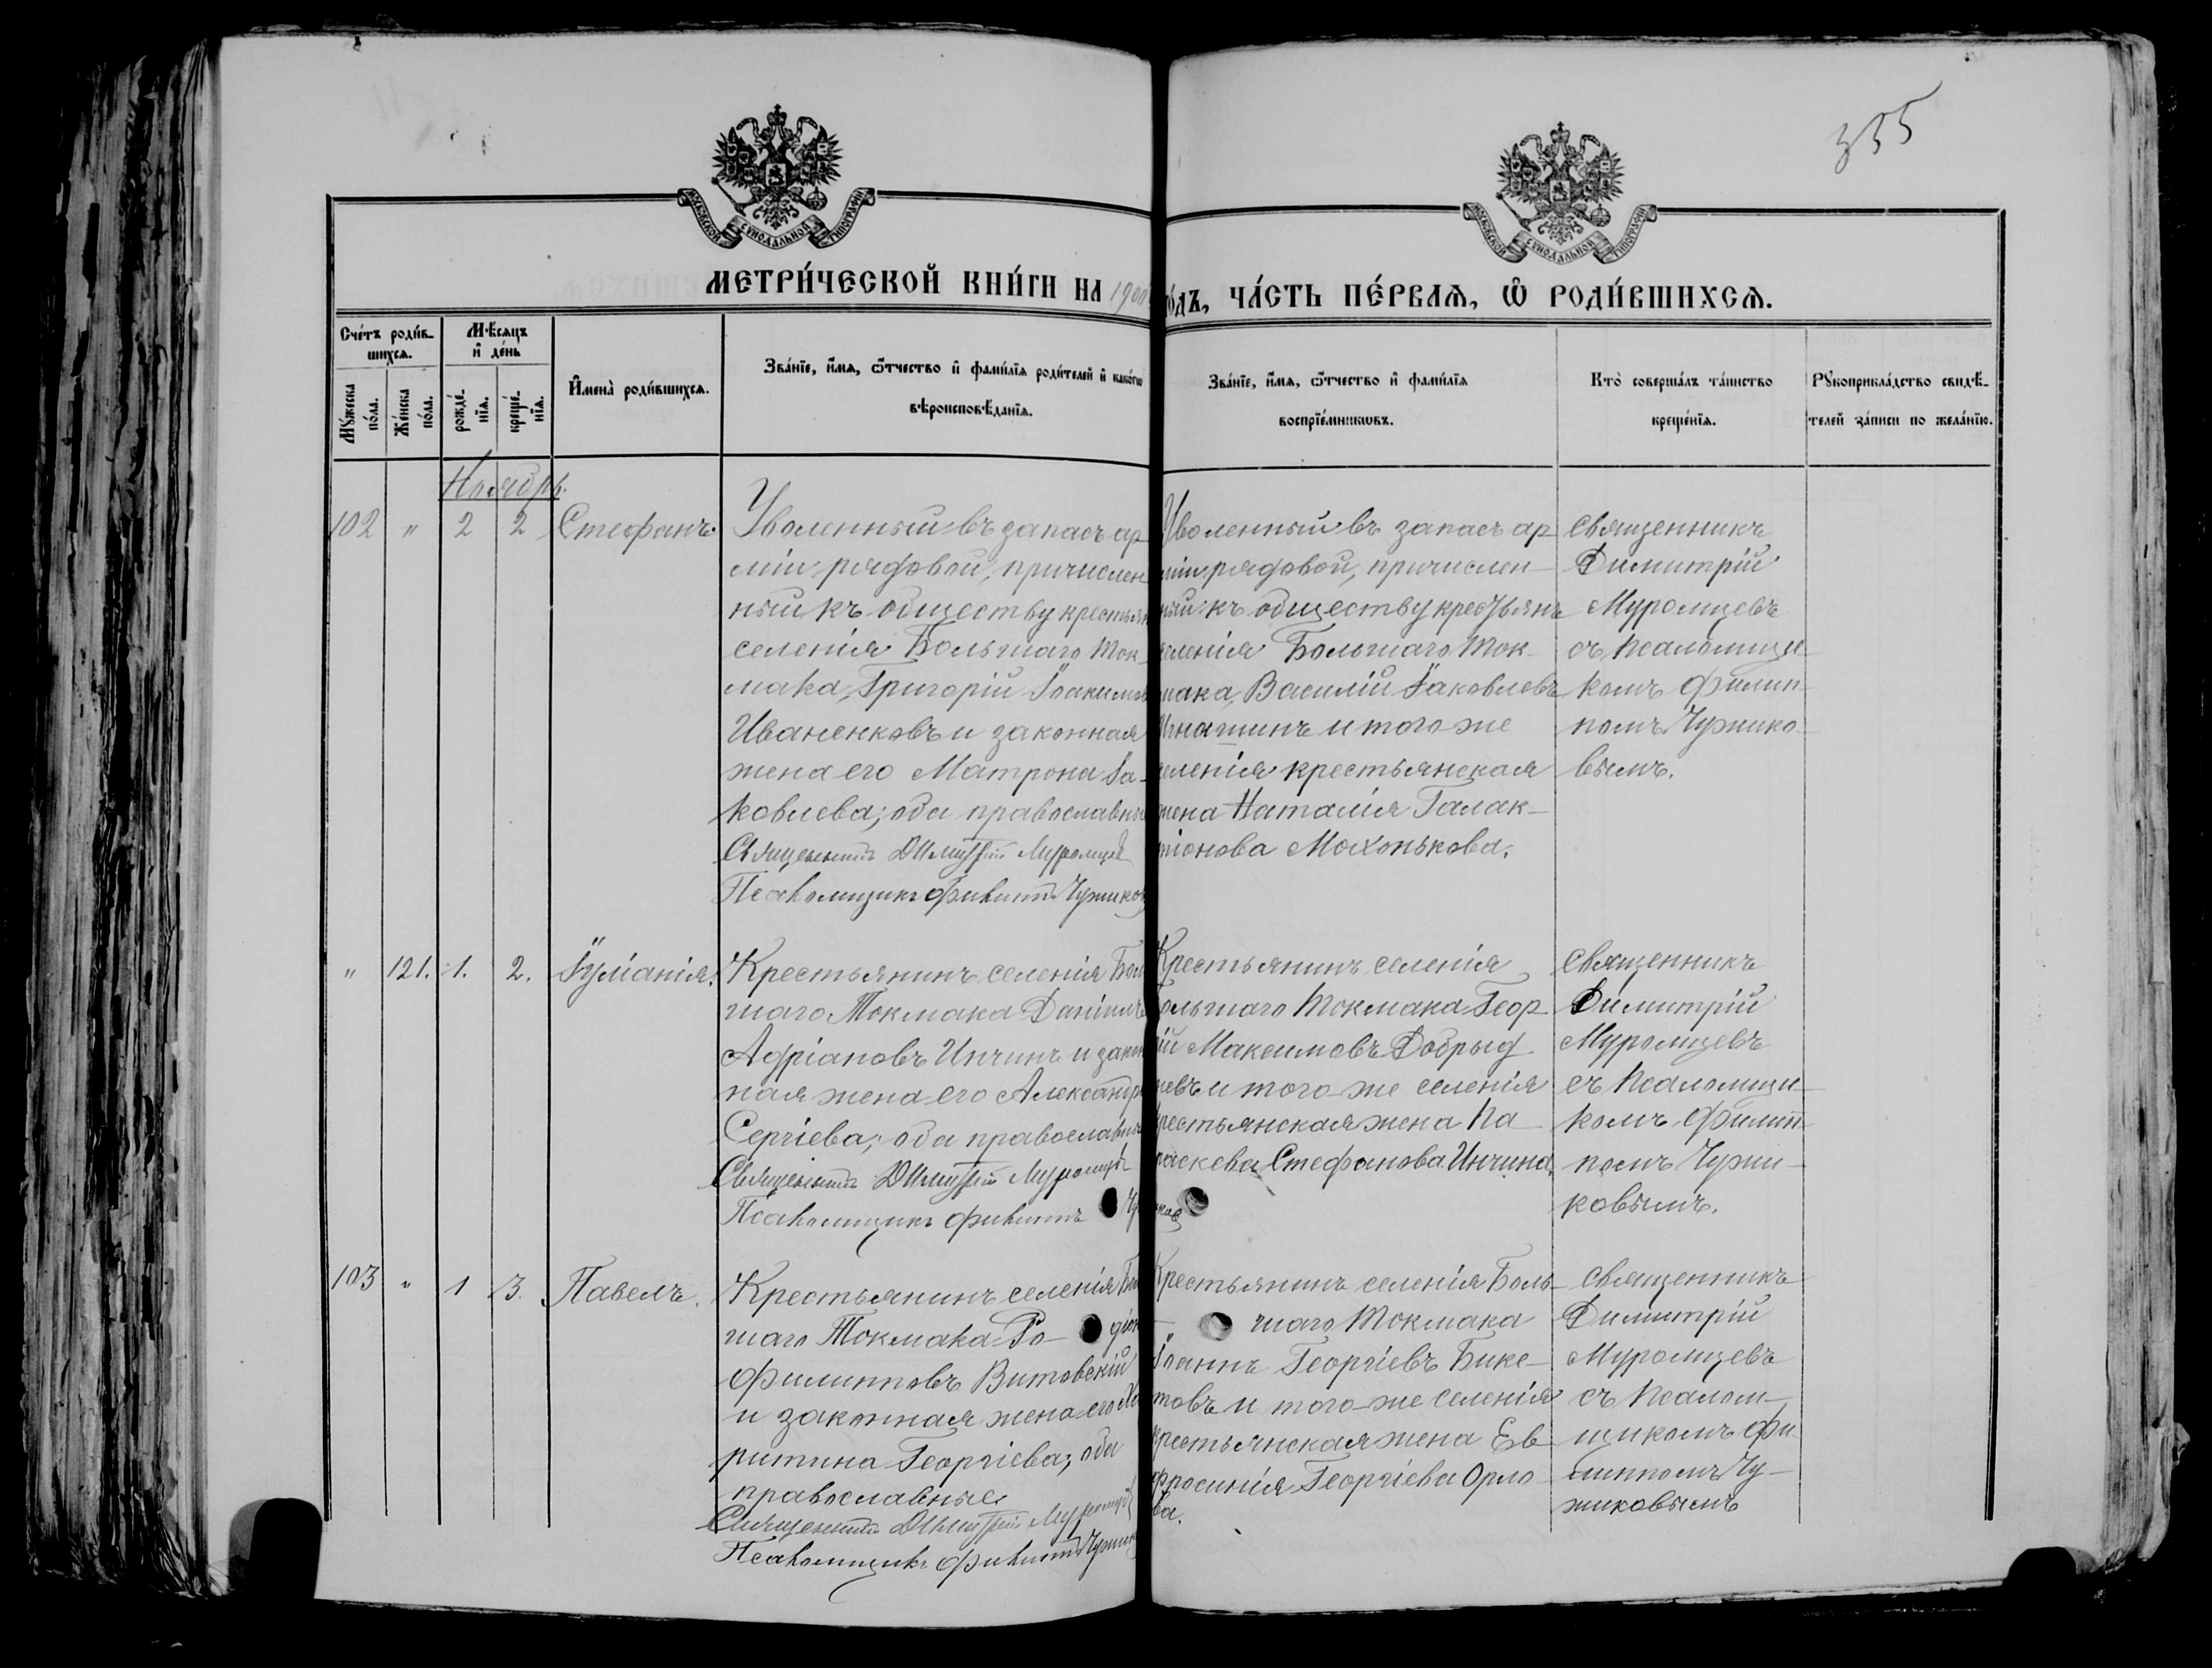 355
МОСКОВСКОЙ СУНОДАЛЬНОЙ ТИПОГРАФІИ
МОСКОВСКОЙ СУНОДАЛЬНОЙ ТИПОГРАФІИ
МЕТРИ́ЧЕСКОЙ КНИ́ГИ НА 1900
го́дъ, ЧА́СТЬ ПЕ́РВАѦ, Ѡ҆ РОДИ́ВШИХСѦ.
Сче́тъ роди́в-
шихсѧ.
Мꙋ́жеска по́ла.
Же́нска по́ла.
Мѣ́сѧцъ
и҆ де́нь
рожде́-
нїѧ.
креще́-
нїѧ.
И҆мена̀ роди́вшихсѧ.
Зва́нїе, и҆́мѧ, ѻ҆́тчество и҆ фами́лїѧ роди́телей и҆ како́гѡ
вѣроисповѣ́данїѧ.
Зва́нїе, и҆́мѧ, ѻ҆́тчество и҆ фами́лїѧ
воспрїе́мникѡвъ.
Кто̀ соверша́лъ та́инство
креще́нїѧ.
Рꙋкоприкла́дство свидѣ́-
телей за́писи по жела́нїю.
Ноябрь.
102 " 2 2 Стефанъ.
Уволенный въ запасъ ар
міи рядовой, причислен
ный къ обществу крестьян
селенія Большаго Ток-
мака, Григорій Іоакимов
Иваненковъ и законная
жена его Матрона Іа-
ковлева; оба православны
Священникъ Димитрій Муромцевъ
Псаломщикъ Филиппъ Чужиков
Уволенный въ запасъ ар
міи рядовой, причислен-
ный къ обществу крестьянъ
селенія Большаго Ток-
мака, Василій Іаковлевъ
Игнатинъ и того же
селенія крестьянская
жена Наталія Галак-
тіонова Мохонькова.
Священникъ
Димитрій
Муромцевъ
съ псаломщи-
комъ Филип-
помъ Чужико-
вымъ.
" 121. 1. 2. Іуліанія.
Крестьянинъ селенія Бол
шаго Токмака Даніилъ
Адріановъ Инчинъ и закон
ная жена его Александр
Сергіева; оба православны
Священникъ Димитрій Муромцевъ
Псаломщикъ Филиппъ Чу
Крестьянинъ селенія
Большаго Токмака Геор
гій Максимовъ Добрыд
невъ и того же селенія
крестьянская жена Па
раскева Стефанова Инчина.
Священникъ
Димитрій
Муромцевъ
съ псаломщи-
комъ Филип-
помъ Чужи-
ковымъ.
103 " 1 3. Павелъ.
Крестьянинъ селенія Бол
шаго Токмака Ро- діон
Филипповъ Витовскій
и законная жена его Ха
ритина Георгіева; оба
православные
Священникъ Димитрій Муромцевъ
Псаломщикъ Филиппъ Чужик
Крестьянинъ селенія Боль-
шаго Токмака
Іоаннъ Георгіевъ Бике-
товъ и того же селенія
крестьянская жена Ев
фросинія Георгіева Орло-
ва.
Священникъ
Димитрій
Муромцевъ
съ псалом-
щикомъ Фи-
липпомъ Чу-
жиковымъ